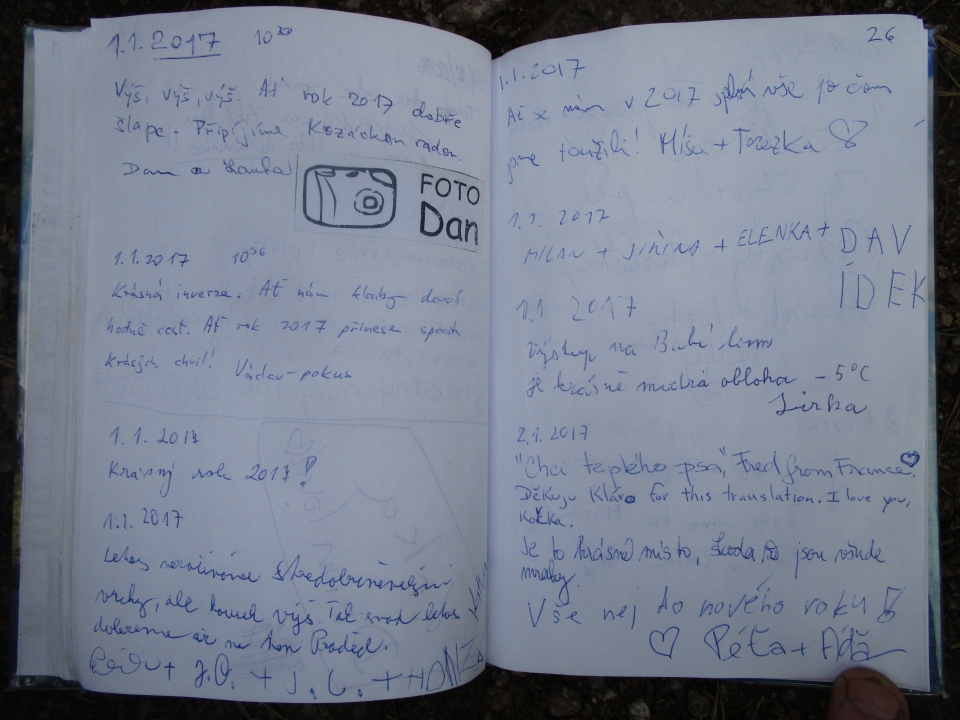 1.1. 2017 10
Výš, výš, výš. Ať rok 2017 dobře
šlape. Připíjíme Kozáckou radou.
Dan a
FOTO
Dan
1.1.2017 10
Krásná inverze. Ať nám klouby dovolí
hodně cest. Ať rok 2017 přinese spoustu
krásných chvil! Václav-pokus
1.1.2017
Krásný rok 2017!
1.1. 2017
Letos nezačínáme
vrchy, ale kousek výš. Tak snad letos
dojdeme až na Praděd.
+ J.O. + J. C. + HONZA
26
1.1.2017
Ať se nám v 2017 splní vše po čem
jsme toužili! Míša + Terezka ♡
1.1. 2017
MILAN + JIŘINA + ELENKA + DAV
ÍDEK
1.1 2017
Výstup na Babí lom
je krásně modrá obloha -5°C
Jirka
2.1.2017
"Chci teplého psa," Fred from France. ♡
Děkuju Kláro for this translation. I love you,
Kočka.
Je to krásné místo, škoda, že jsou všude
mraky.
Vše nej do nového roku!
♡ Péťa + Áďa